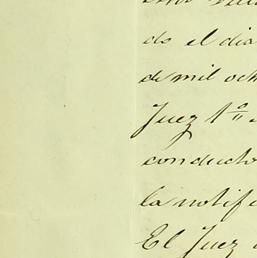 do el dia
de mil och
Juez 1º
conducto
la notifi
El Juez